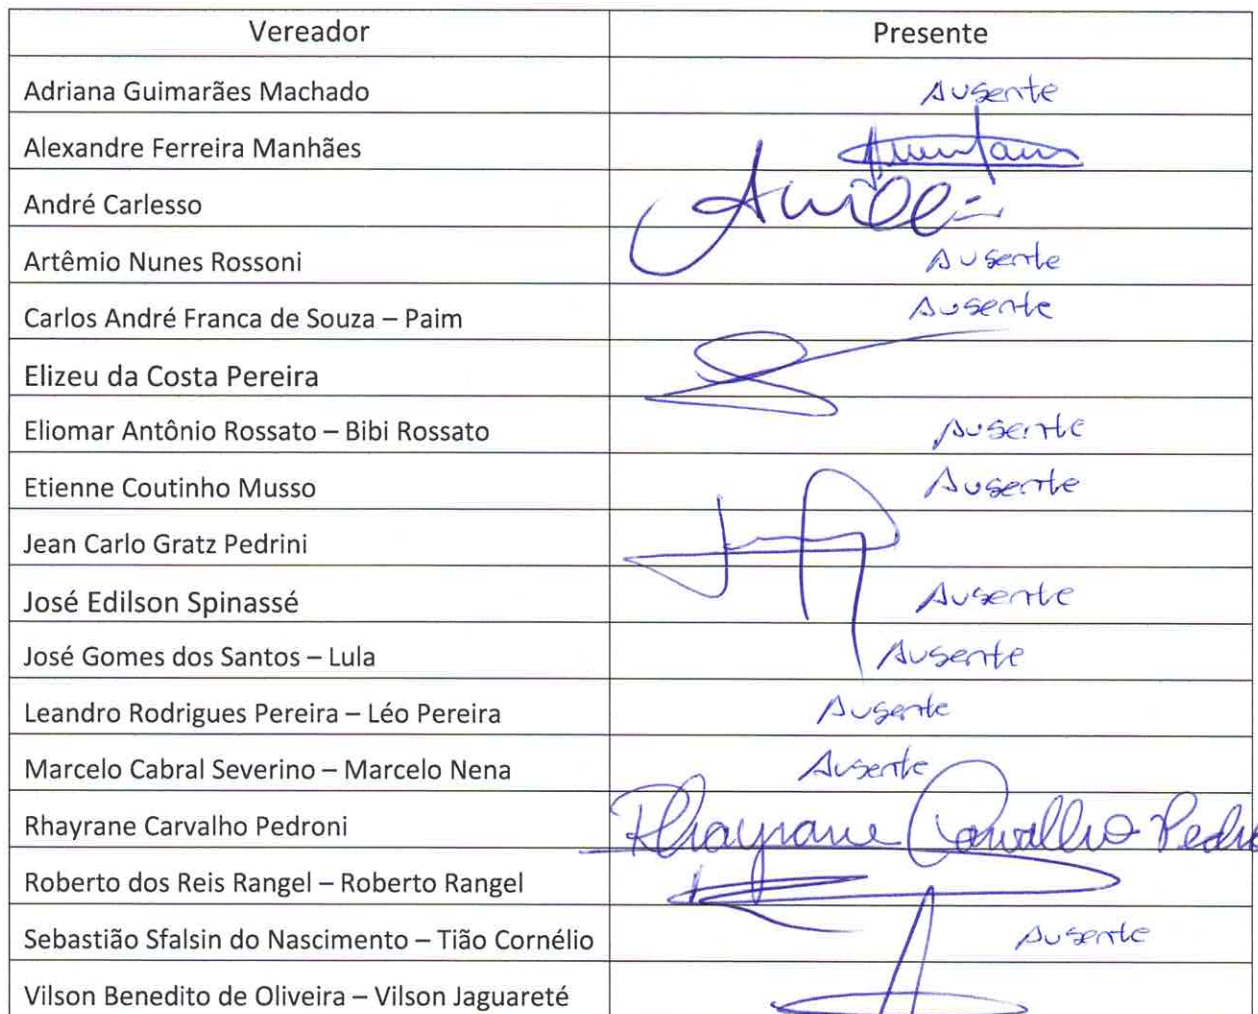 Vereador Presente
Adriana Guimarães Machado Ausente
Alexandre Ferreira Manhães
André Carlesso
Artêmio Nunes Rossoni Ausente
Carlos André Franca de Souza – Paim Ausente
Elizeu da Costa Pereira
Eliomar Antônio Rossato – Bibi Rossato Ausente
Etienne Coutinho Musso Ausente
Jean Carlo Gratz Pedrini
José Edilson Spinassé Ausente
José Gomes dos Santos – Lula Ausente
Leandro Rodrigues Pereira – Léo Pereira Ausente
Marcelo Cabral Severino – Marcelo Nena Ausente
Rhayrane Carvalho Pedroni Rhayrane Carvalho
Roberto dos Reis Rangel – Roberto Rangel
Sebastião Sfalsin do Nascimento – Tião Cornélio Ausente
Vilson Benedito de Oliveira – Vilson Jaguareté